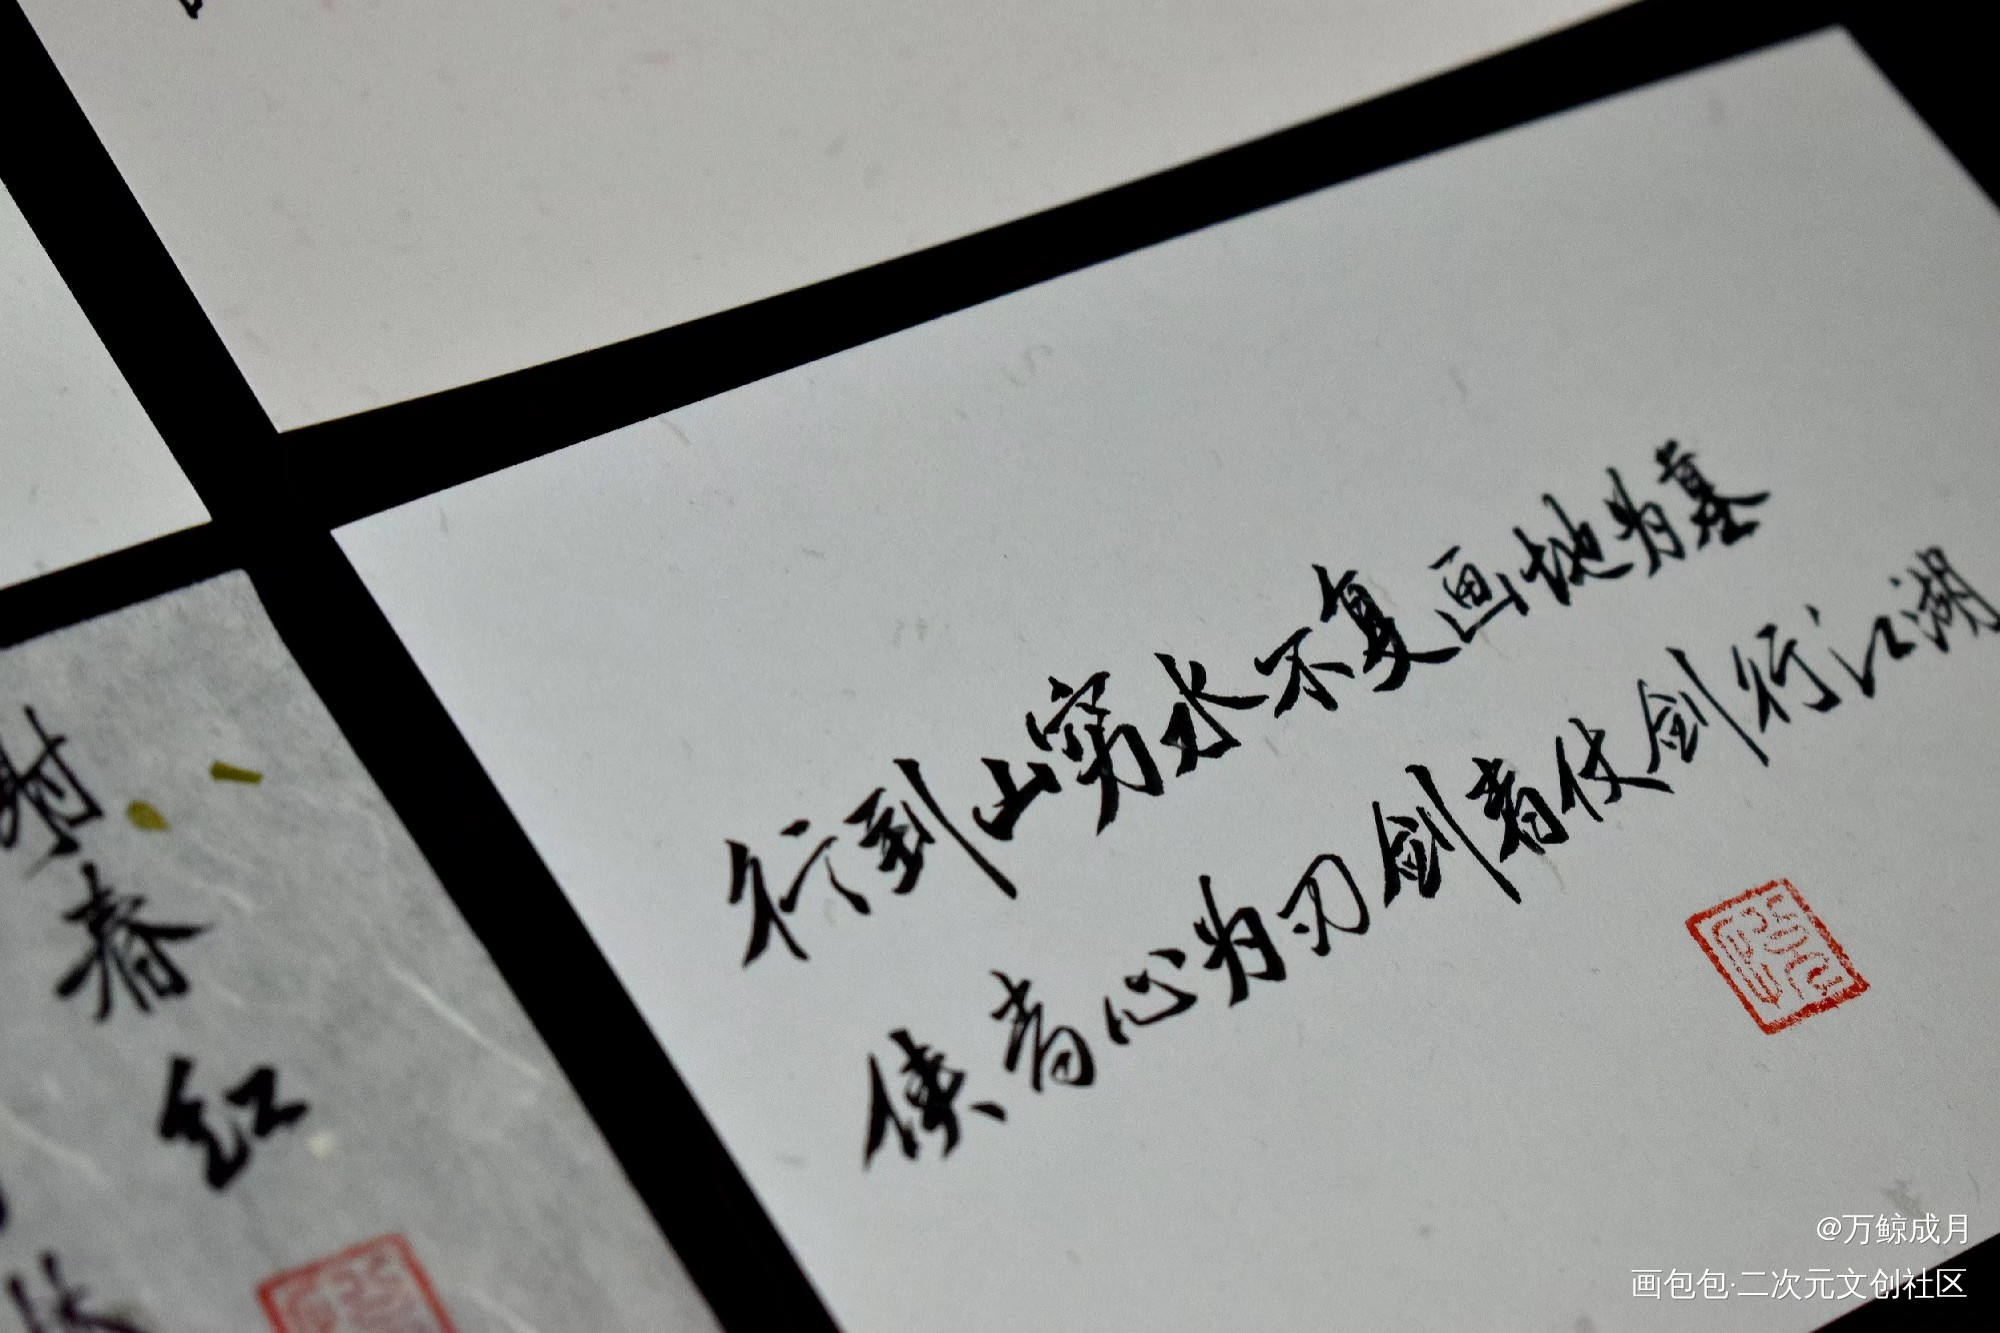 行到山穷水不复画地为墓
侠者心为刃剑者仗剑行江湖
谢
春
红
@万鲸成月
画包包·二次元文创社区